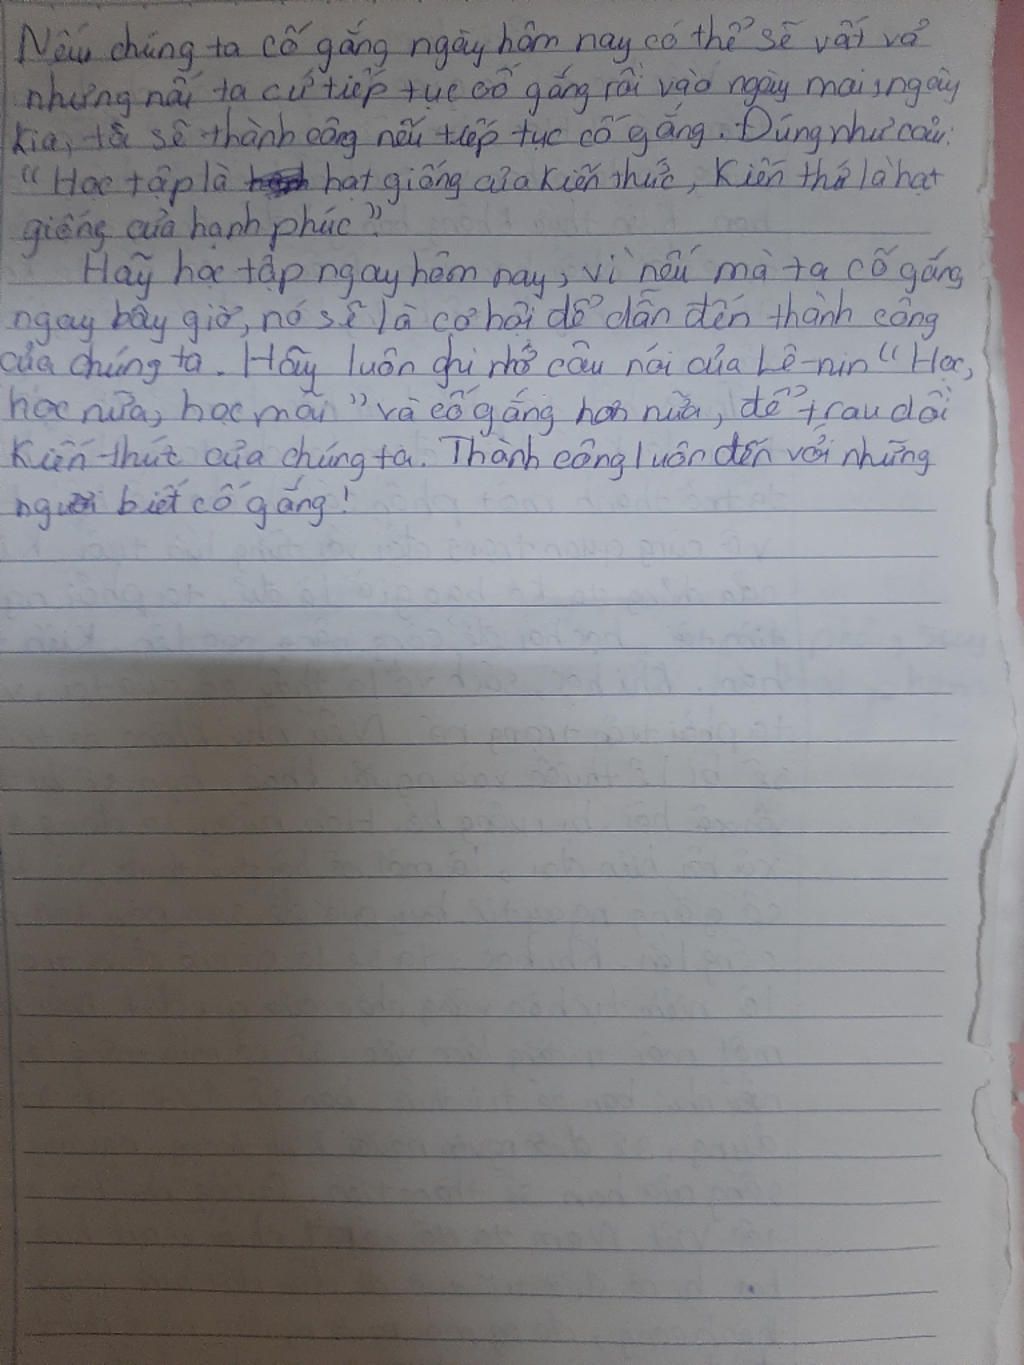 Nếu chúng ta cố gắng ngày hôm nay có thể sẽ vất vả
nhưng nếu ta cứ tiếp tục cố gắng rồi vào ngày mai, ngày
kia, ta sẽ thành công nếu tiếp tục cố gắng. Đúng như câu:
"Học tập là hạt giống của kiến thức, kiến thứ là hạt
giống của hạnh phúc"
Hãy học tập ngay hôm nay, vì nếu mà ta cố gắng
ngay bây giờ, nó sẽ là cơ hội để dẫn đến thành công
của chúng ta. Hãy luôn ghi nhớ câu nói của Lê-nin "Học,
học nữa, học mãi" và cố gắng hơn nữa, để trau dồi
kiến thức của chúng ta. Thành công luôn đến với những
người biết cố gắng!